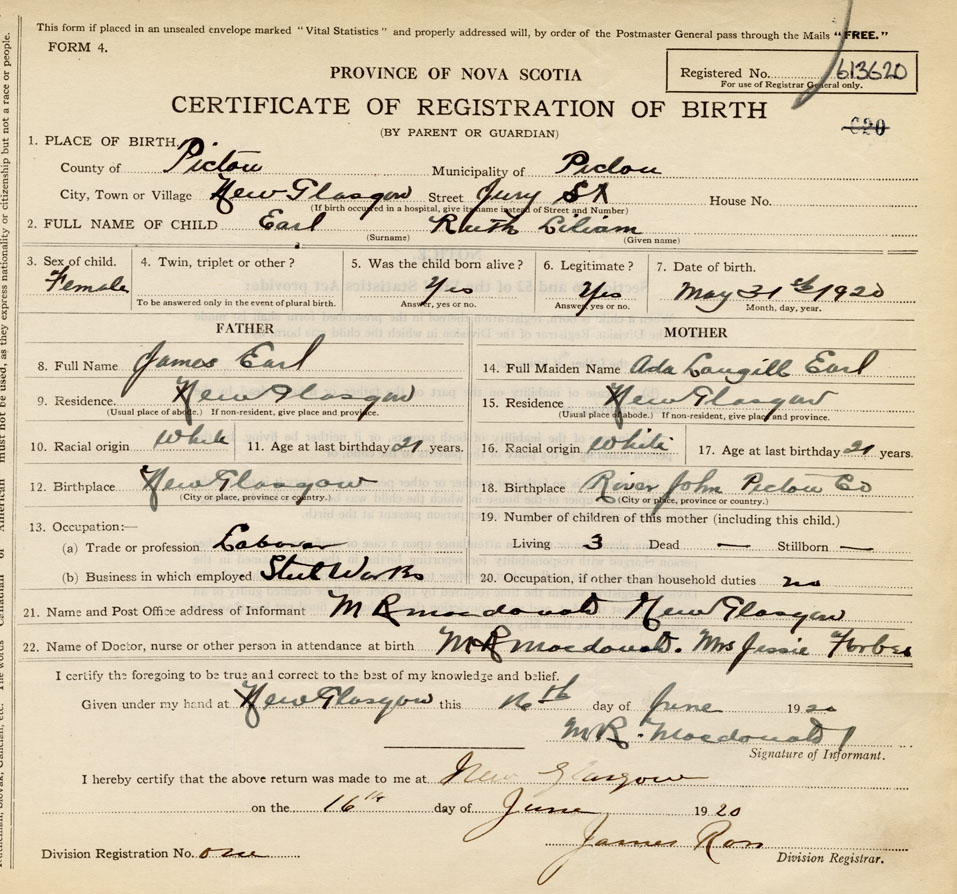 This form if placed in an unsealed envelope marked "Vital Statistics" and properly addressed will, by order of the Postmaster General pass through the Mails "FREE."
FORM 4.
PROVINCE OF NOVA SCOTIA
Registered No. 613620
For use of Registrar General only.
CERTIFICATE OF REGISTRATION OF BIRTH
(BY PARENT OR GUARDIAN)
620
1. PLACE OF BIRTH.
County of Pictou Municipality of Pictou
City, Town or Village New Glasgow Street Jury St House No.
(If birth occurred in a hospital, give its name instead of Street and Number)
2. FULL NAME OF CHILD Earl Ruth Liliam
(Surname) (Given name)
3. Sex of child. 4. Twin, triplet or other? 5. Was the child born alive? 6. Legitimate? 7. Date of birth.
Female Yes Yes May 31st 1920
To be answered only in the event of plural birth. Answer, yes or no. Answer, yes or no. Month, day, year.
FATHER MOTHER
8. Full Name James Earl 14. Full Maiden Name Ada Langill Earl
9. Residence. New Glasgow 15. Residence New Glasgow
(Usual place of abode.) If non-resident, give place and province. (Usual place of abode.) If non-resident, give place and province.
10. Racial origin White 11. Age at last birthday 21 years. 16. Racial origin White 17. Age at last birthday 21 years.
12. Birthplace New Glasgow 18. Birthplace River John Pictou Co
(City or place, province or country.) (City or place, province or country.)
13. Occupation:— 19. Number of children of this mother (including this child.)
(a) Trade or profession Laborer Living 3 Dead — Stillborn —
(b) Business in which employed Steel Works 20. Occupation, if other than household duties no
21. Name and Post Office address of Informant M R Macdonald New Glasgow
22. Name of Doctor, nurse or other person in attendance at birth M R Macdonald. Mrs Jessie Forbes
I certify the foregoing to be true and correct to the best of my knowledge and belief.
Given under my hand at New Glasgow this 16th day of June 1920
M R. Macdonald
Signature of Informant.
I hereby certify that the above return was made to me at New Glasgow
on the 16th day of June 1920
James Ross
Division Registration No. one Division Registrar.